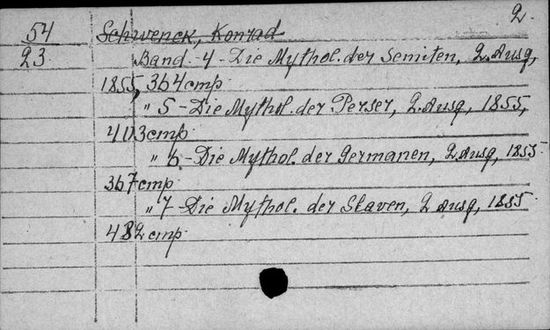 2.
54 Schwenck, Konrad
23 Band. 4 - Die Mythol. der Semiten, 2. Ausg,
1855, 364 cmp
" 5 - Die Mythol. der Perser, 2. Ausg, 1855,
403 cmp
" 6 - Die Mythol. der Germanen, 2. Ausg, 1855
367 cmp
" 7 - Die Mythol. der Slaven, 2 Ausg, 1855
482 cmp